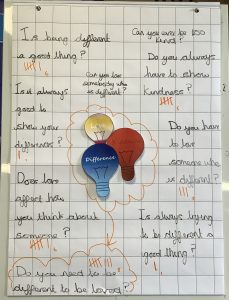 Is being different
a good thing?
Can you ever be too
kind?
Do you always
have to show
Kindness?
Can you love
somebody who
is different?
Is it always
good to
show your
difference?
Difference
Do you have
to love
someone who
is different?
Does love
affect how
you think about
someone?
Is always trying
to be different a
good thing?
Do you need to be
different to be loved?